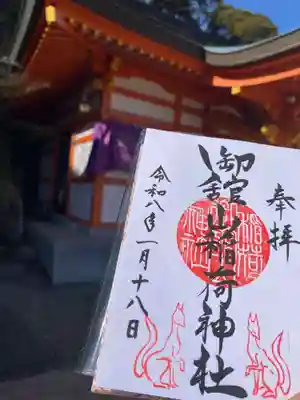 奉拝
御館山稲荷神社
令和八年一月十八日